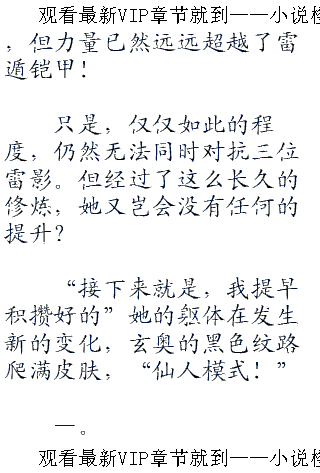 观看最新VIP章节就到——小说
，但力量已然远远超越了雷
遁铠甲！
只是，仅仅如此的程
度，仍然无法同时对抗三位
雷影。但经过了这么长久的
修炼，她又岂会没有任何的
提升？
“接下来就是，我提早
积攒好的”她的躯体在发生
新的变化，玄奥的黑色纹路
爬满皮肤，“仙人模式！”
一。
观看最新VIP章节就到——小说